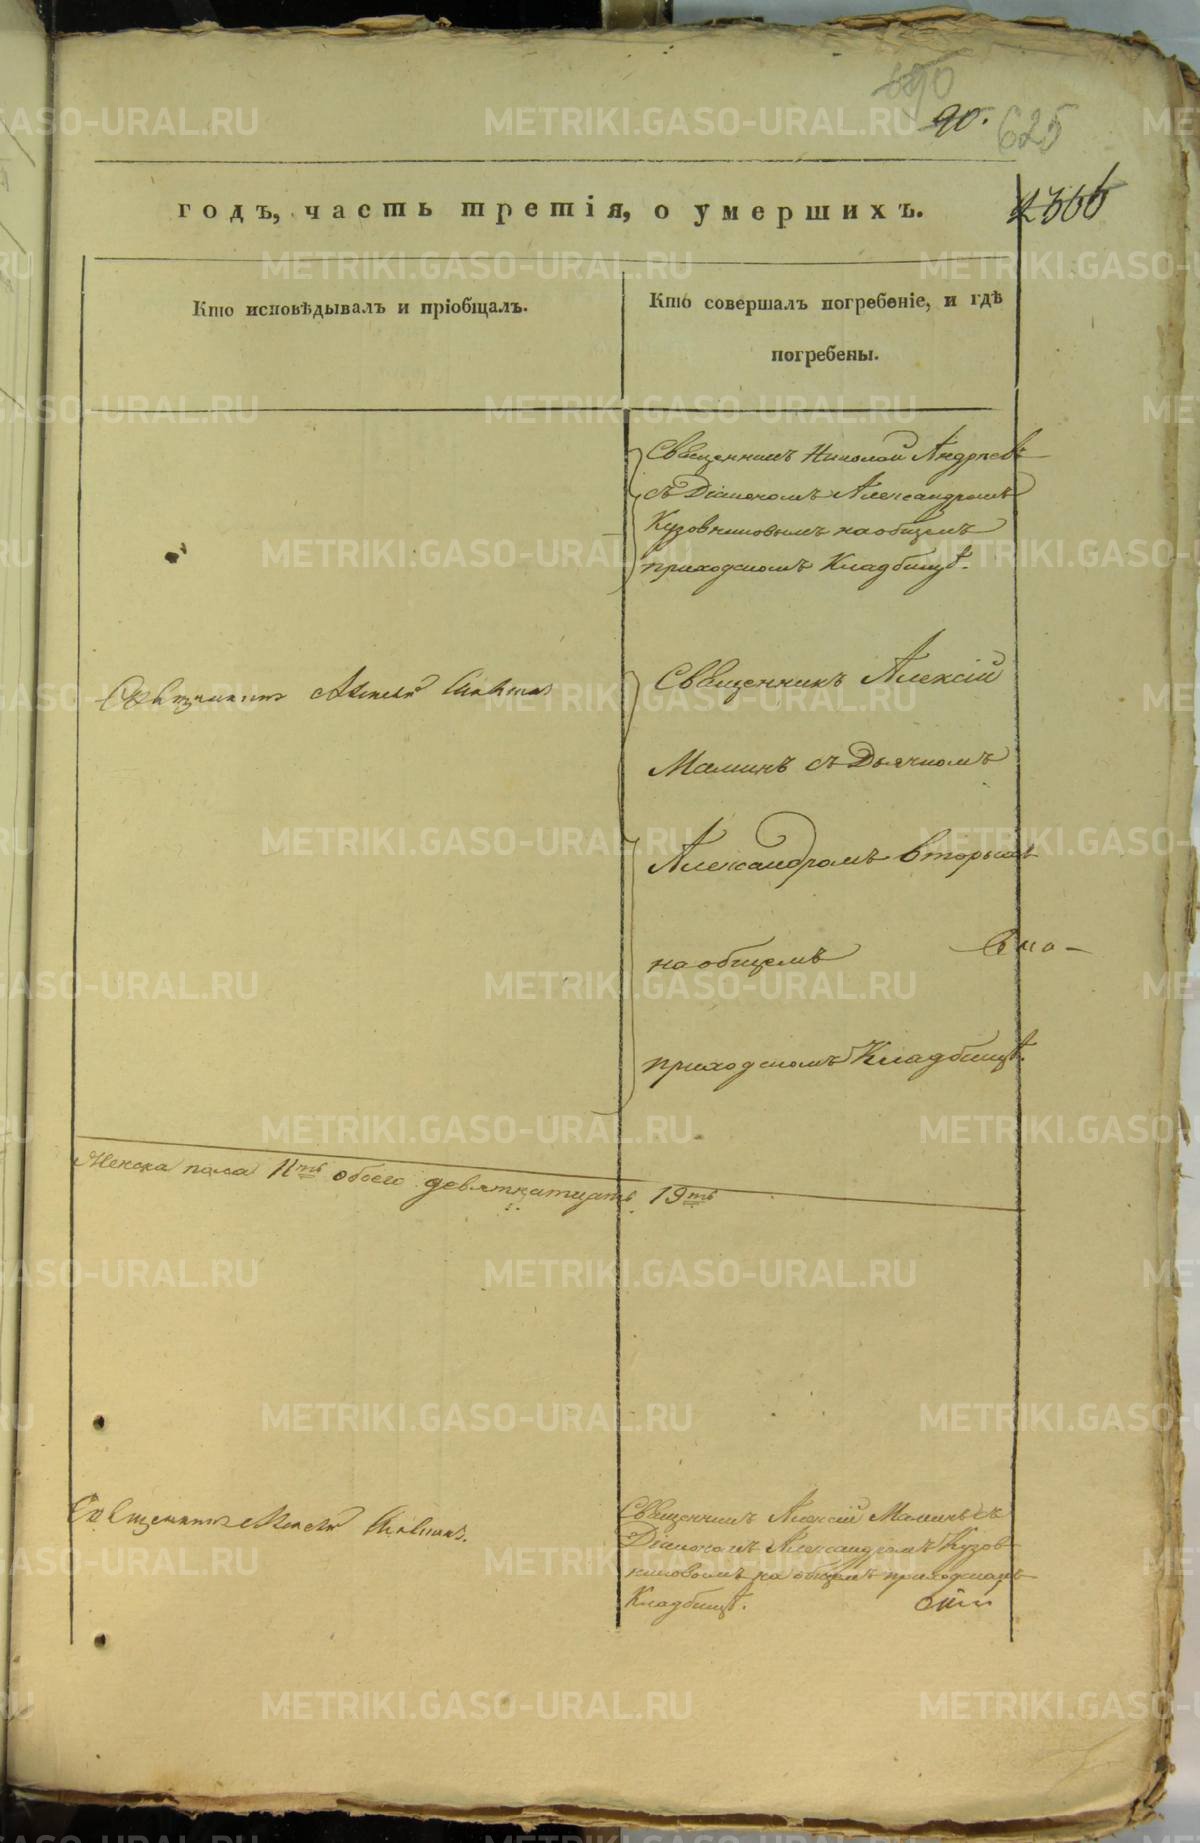 690
90. 625
годъ, часть третія, о умершихъ.
Кто исповѣдывалъ и пріобщалъ.
Кто совершалъ погребеніе, и гдѣ
погребены.
Священникъ Николай Андреевъ
съ Діакономъ Александромъ
Кузовниковымъ на общемъ
приходскомъ Кладбищѣ.
Священникъ Алексѣй
Священникъ Алексій
Маминъ съ Дьячкомъ
Александромъ
на общемъ
приходскомъ Кладбищѣ.
Женска пола 11ть обоего девятнатцать 19ть
Священникъ Алексѣй
Священникъ Алексій Маминъ съ
Діакономъ Александромъ Кузов
никовымъ на общемъ приходскомъ
Кладбищѣ.
METRIKI.GASO-URAL.RU